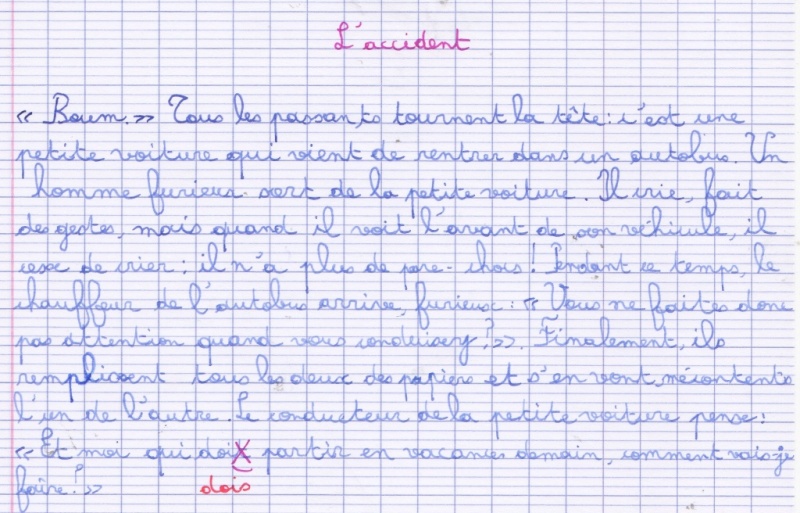 L'accident
« Boum. » Tous les passants tournent la tête : c'est une
petite voiture qui vient de rentrer dans un autobus. Un
homme furieux sort de la petite voiture. Il crie, fait
des gestes, mais quand il voit l'avant de son véhicule, il
cesse de crier : il n'a plus de pare-chocs ! Pendant ce temps, le
chauffeur de l'autobus arrive, furieux : « Vous ne faites donc
pas attention quand vous conduisez ? ». Finalement, ils
remplissent tous les deux des papiers et s'en vont, mécontents
l'un de l'autre. Le conducteur de la petite voiture pense :
« Et moi qui doiX partir en vacances demain, comment vais-je
faire ? »
dois